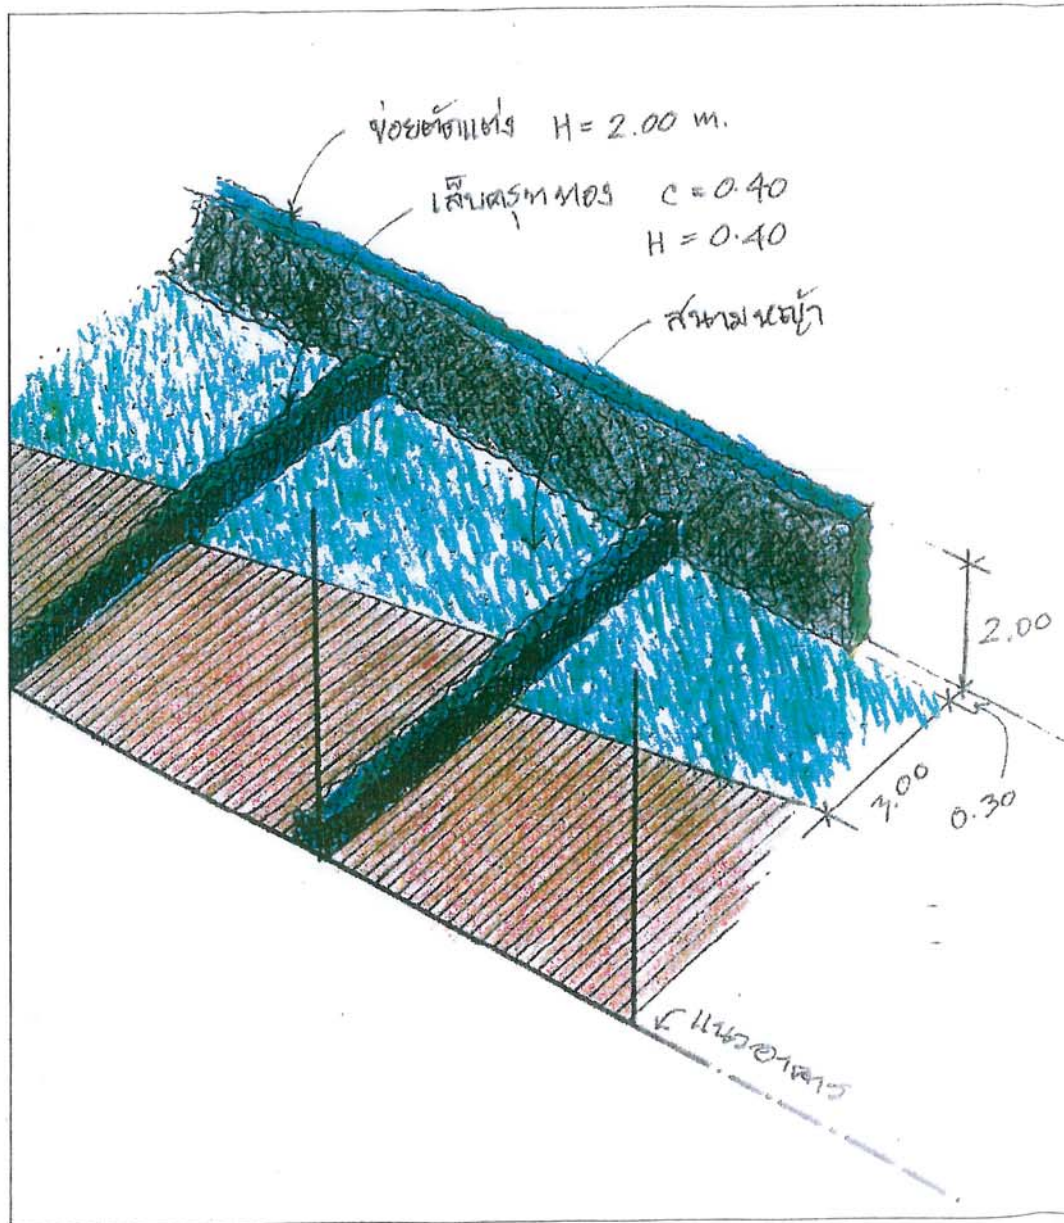 ข่อยตัดแต่ง H = 2.00 m.
เล็บครุฑทอง C = 0.40
H = 0.40
สนามหญ้า
2.00
0.30
แนวอาคาร